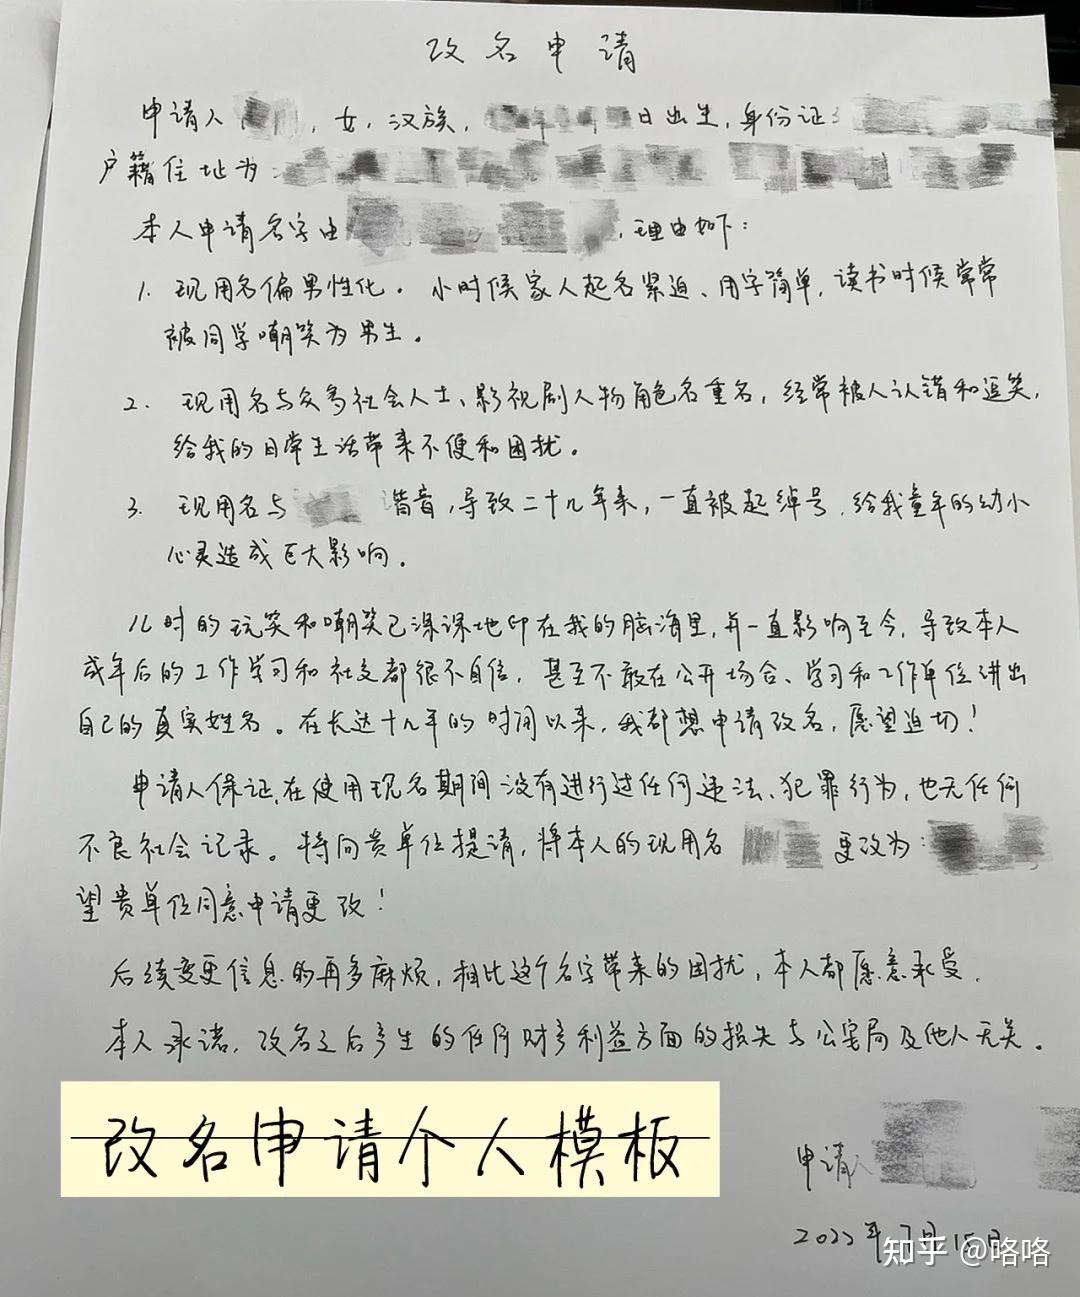 改名申请
申请人，女，汉族，日出生，身份证
户籍住址为：
本人申请名字由，理由如下：
1. 现用名偏男性化。小时候家人起名紧迫、用字简单，读书时候常常
被同学嘲笑为男生。
2. 现用名与众多社会人士、影视剧人物角色名重名，经常被人认错和逗笑，
给我的日常生活带来不便和困扰。
3. 现用名与谐音，导致二十几年来，一直被起绰号，给我童年的幼小
心灵造成巨大影响。
儿时的玩笑和嘲笑已深深地印在我的脑海里，并一直影响至今，导致本人
成年后的工作学习和社交都很不自信，甚至不敢在公开场合、学习和工作单位讲出
自己的真实姓名。在长达十几年的时间以来，我都想申请改名，愿望迫切！
申请人保证，在使用现名期间没有进行过任何违法、犯罪行为，也无任何
不良社会记录。特向贵单位提请，将本人的现用名更改为：
望贵单位同意申请更改！
后续变更信息的再多麻烦，相比这个名字带来的困扰，本人都愿意承受。
本人承诺，改名之后产生的任何财产利益方面的损失与公安局及他人无关。
改名申请个人模板
申请人
2022年7月15日
知乎 @咯咯